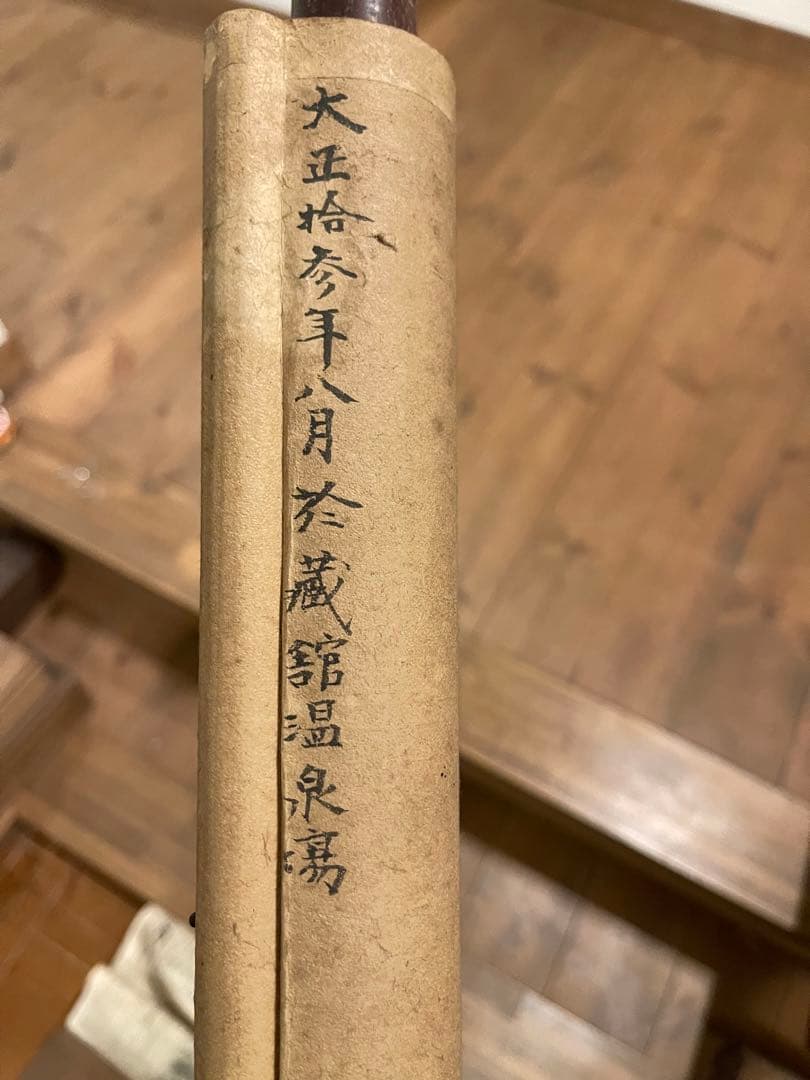 大正拾参年八月於藏舘温泉塲